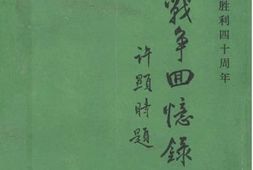 胜利四十周年
戰争回憶錄
许顯時题